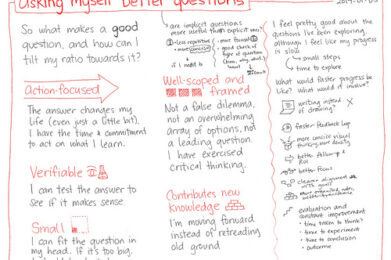 Asking myself better questions
So what makes a good
question, and how can I
tilt my ratio towards it?
Action-focused
The answer changes my
life (even just a little bit).
I have the time & commitment
to act on what I learn.
Verifiable
I can test the answer to
see if it makes sense.
Small
I can fit the question in
my head. If it's too big,
are implicit questions
more useful than explicit ones?
less repetitive
more concise
if I need to
more focused
good check of
type of question
Well-scoped and
framed
Not a false dilemma,
not an overwhelming
array of options, not
a leading question.
I have exercised
critical thinking.
Contributes new
knowledge
I'm moving forward
instead of retreading
old ground
I feel pretty good about the
questions I've been exploring,
although I feel like my progress
is slow
small steps
time to explore
What would faster progress be
like? What would it involve?
writing instead
of drawing?
faster feedback loop
more concise visual
better follow-up
better focus
cleaner alignment
with goals?
evaluation and
constant improvement
time taken to think?
time to experiment
time to conclusion
outcome